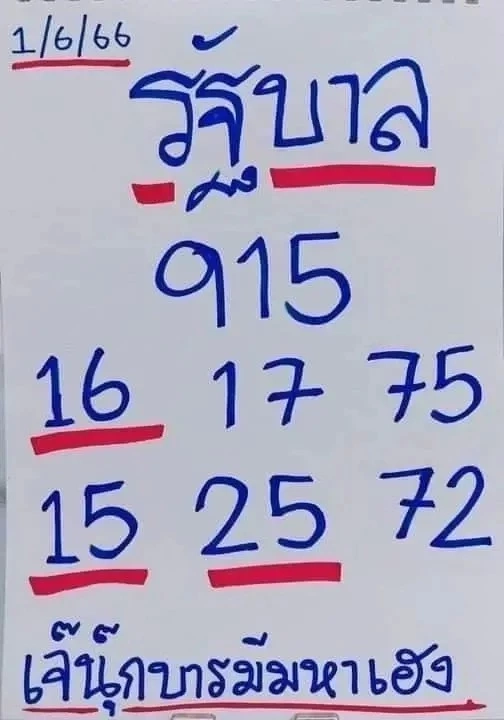 1/6/66
รัฐบาล
915
16 17 75
15 25 72
เจ๊นุ๊กบารมีมหาเฮง